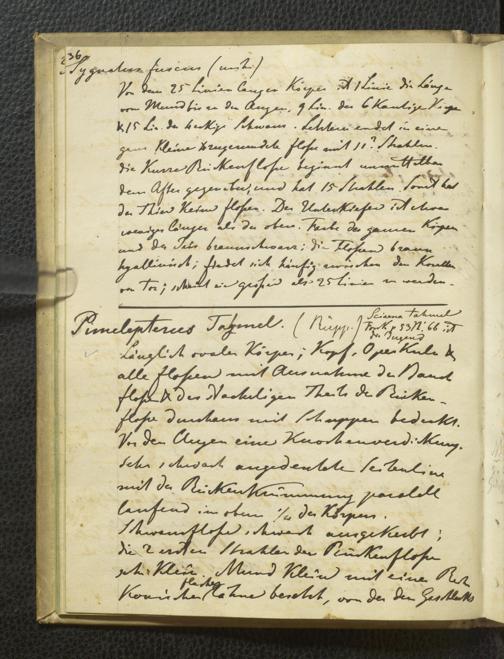 236
Sygnatus fuscus (mihi)
Von dem 25 Linien langen Körper ist 1 Linie die Länge
vom Mund bis zu den Augen, 9 Lin. der 6 kantige
& 15 Lin. der 4eckige Schwanz. Letzterer endet in eine
ganz kleine zugerundete flosse mit 11? Strahlen.
die Kurze Rückenflosse beginnt unmittelbar
dem After gegenüber, und hat 15 Strahlen. Sonst hat
das Thier keine flossen. Der Unterkiefer ist etwas
weniges länger als der obere. Farbe des ganzen Körpers
und der Iris braunschwarz; die flossen braun
hyallinisch; findet sich häufig zwischen den Korallen
von Tor; scheint nie größer als 25 Linien zu werden.
Pimelepterus Tahmel. (Rüpp.) Sciaena tahmel
Forsk. p 53 N. 66 ist
die Jugend
Länglich ovaler Körper; Kopf, Operkule &
alle flossen mit Ausnahme der Bauch
flosse & des Stacheligen Theils der Rücken-
flosse durchaus mit Schuppen bedeckt.
Vor den Augen eine Knochenverdickung.
Sehr schwach angedeutete Seitenlinie
mit der Rückenkrümmung parallel
laufend im obern 1/4 des Körpers.
Schwanzflosse schwach ausgekerbt;
die 2 ersten Strahlen der Rückenflosse
sehr klein, Mund klein mit einer Reihe
Konischer Zähne besetzt, von der den Geschlechts